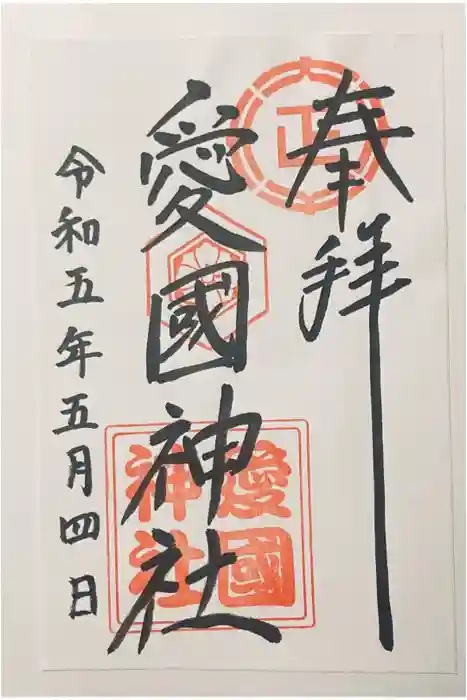 奉拝
愛國神社
令和五年五月四日
大正
愛國
神社